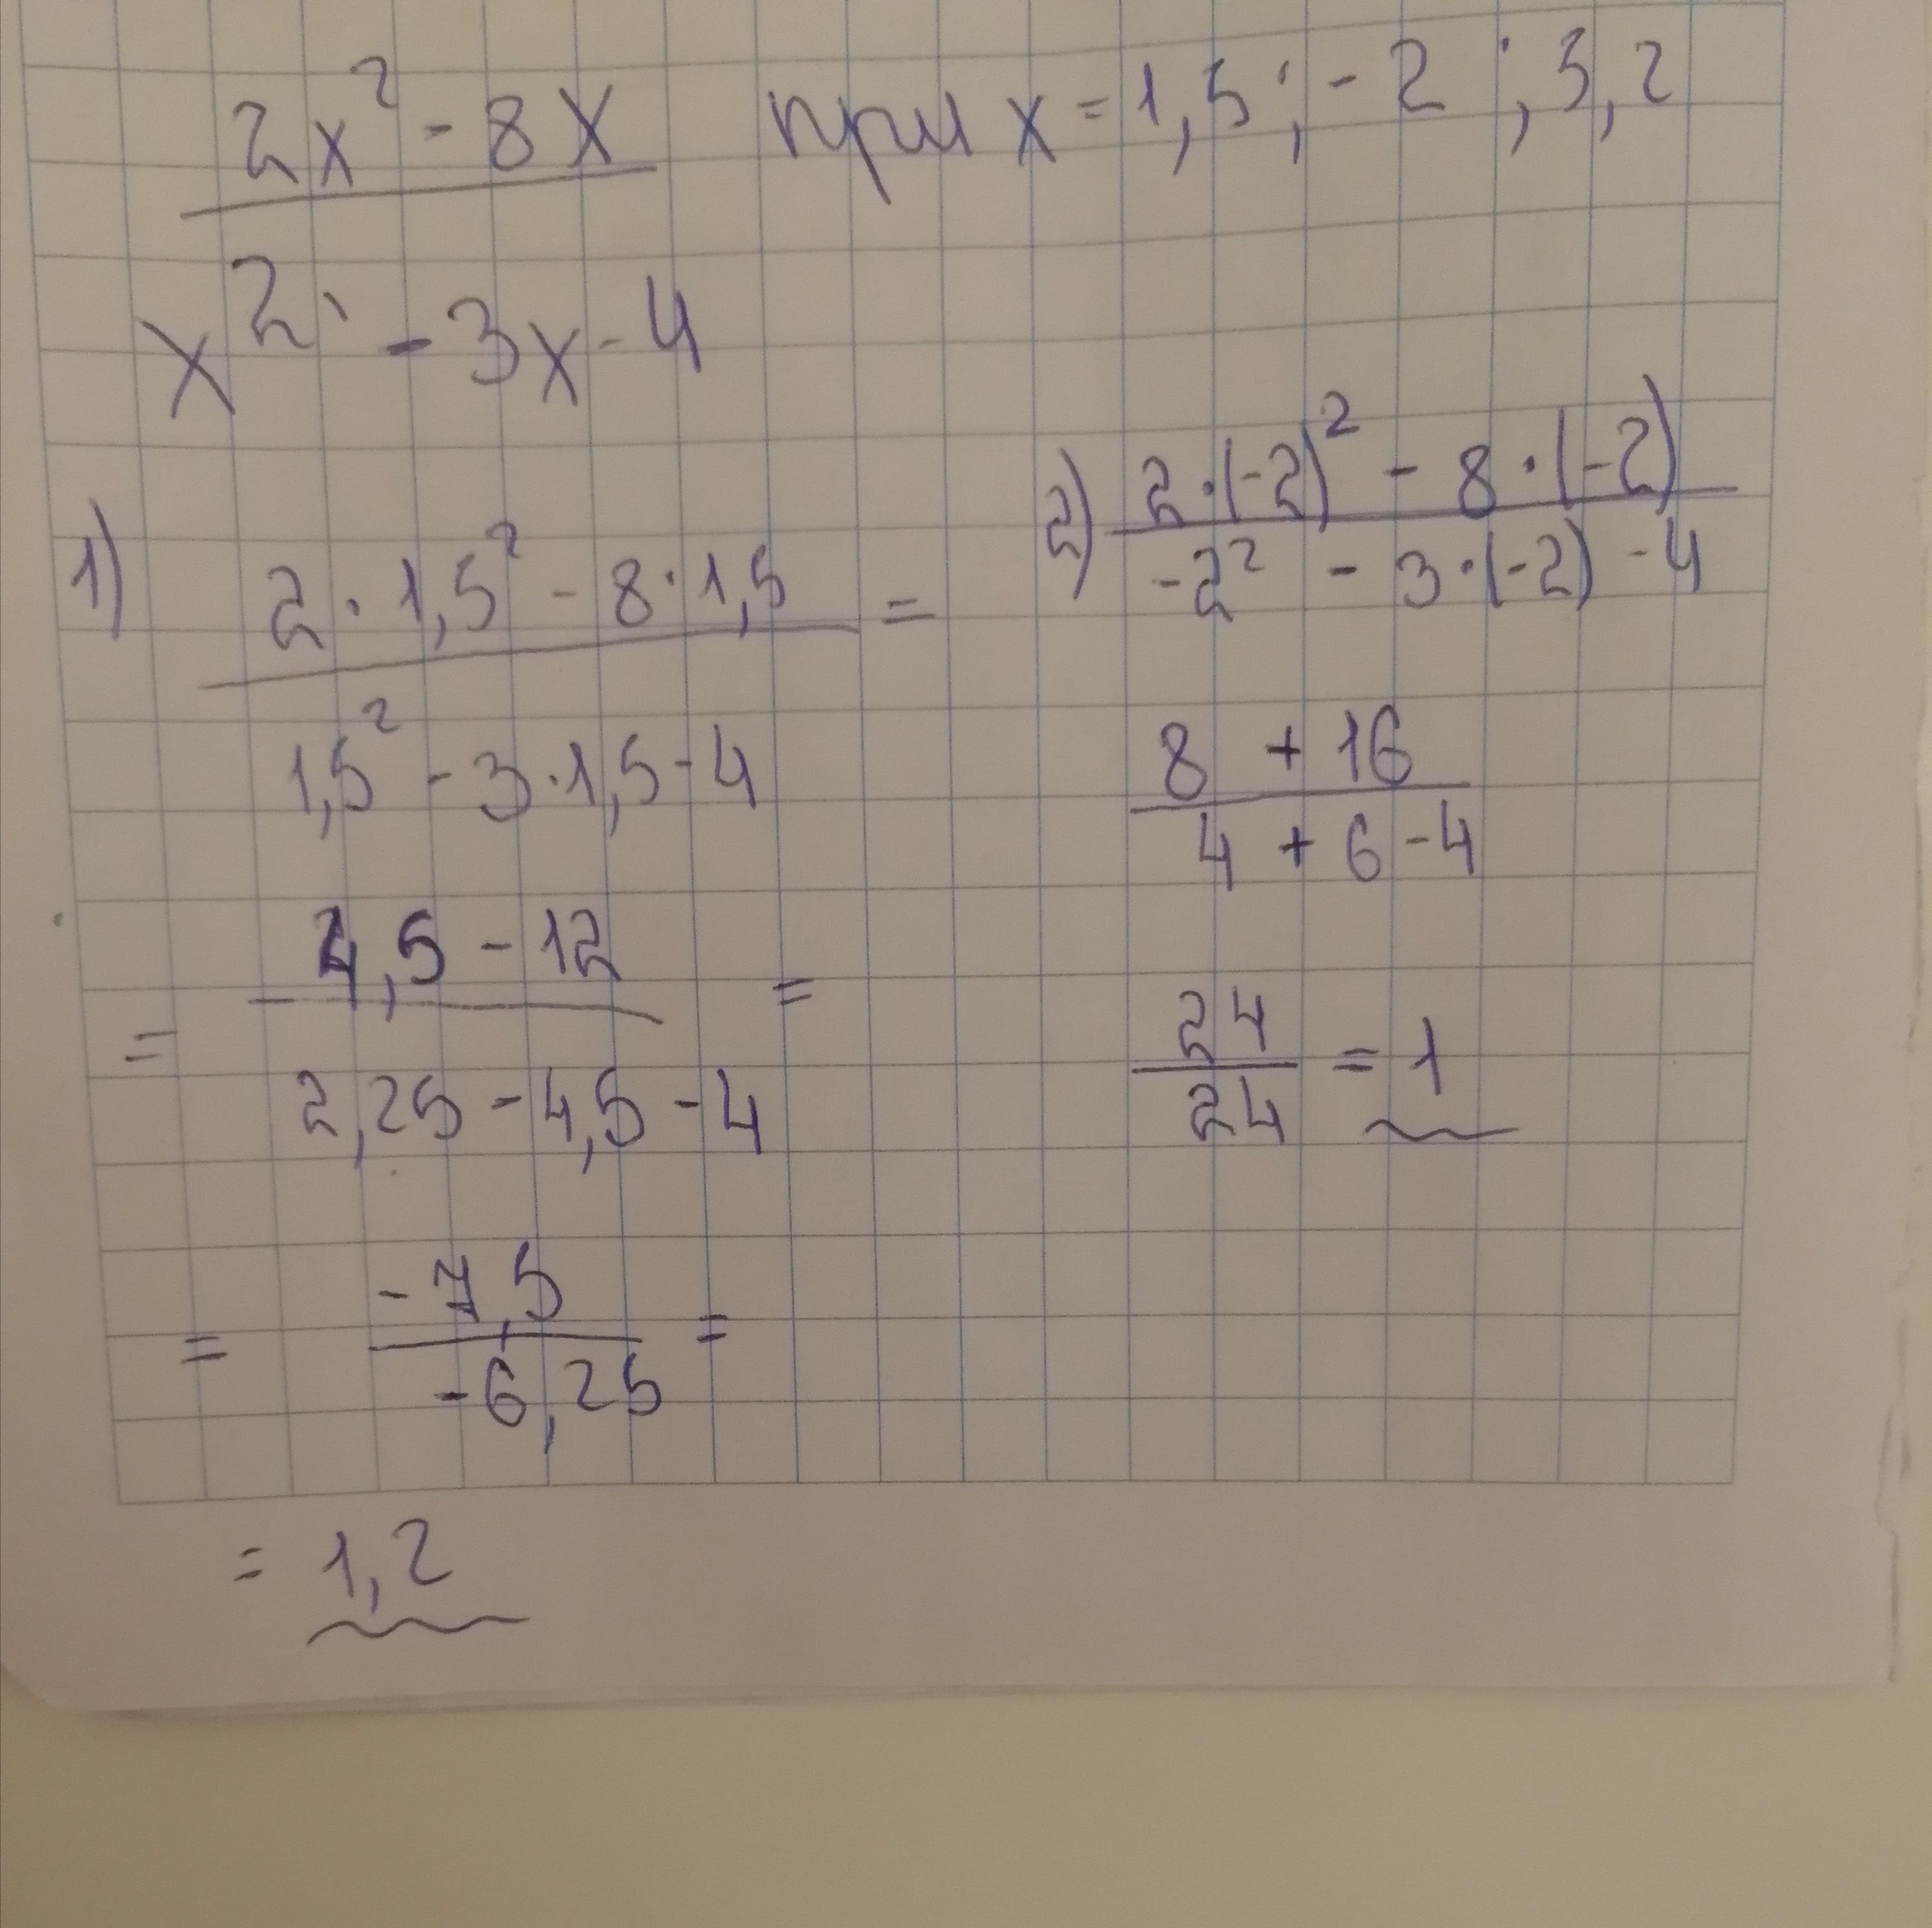 2x² - 8x при x = 1,5 ; -2 ; 5,2
x² - 3x - 4
1)
2 · 1,5² - 8 · 1,5 =
1,5² - 3 · 1,5 - 4
= 4,5 - 12 =
2,25 - 4,5 - 4
= -7,5 =
-6,25
= 1,2
2) 2 · (-2)² - 8 · (-2)
-2² - 3 · (-2) - 4
8 + 16
4 + 6 - 4
24 = 1
24